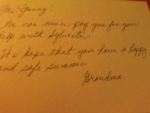 Mr. Young,
We can never pay you for your
help with Sylvester.
It's a hope that you have a happy
and safe summer
Grandma